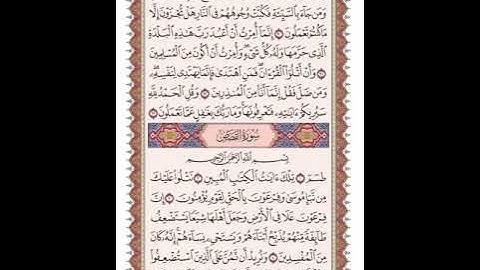 وَمَن جَآءَ بِٱلسَّيِّئَةِ فَكُبَّتْ وُجُوهُهُمْ فِى ٱلنَّارِ هَلْ تُجْزَوْنَ إِلَّا
مَا كُنتُمْ تَعْمَلُونَ ۝ إِنَّمَآ أُمِرْتُ أَنْ أَعْبُدَ رَبَّ هَٰذِهِ ٱلْبَلْدَةِ
ٱلَّذِى حَرَّمَهَا وَلَهُۥ كُلُّ شَىْءٍ ۖ وَأُمِرْتُ أَنْ أَكُونَ مِنَ ٱلْمُسْلِمِينَ
۝ وَأَنْ أَتْلُوَا۟ ٱلْقُرْءَانَ ۖ فَمَنِ ٱهْتَدَىٰ فَإِنَّمَا يَهْتَدِى لِنَفْسِهِۦ ۖ
وَمَن ضَلَّ فَقُلْ إِنَّمَآ أَنَا۠ مِنَ ٱلْمُنذِرِينَ ۝ وَقُلِ ٱلْحَمْدُ لِلَّهِ
سَيُرِيكُمْ ءَايَٰتِهِۦ فَتَعْرِفُونَهَا ۚ وَمَا رَبُّكَ بِغَٰفِلٍ عَمَّا تَعْمَلُونَ ۝
سُورَةُ القَصَصِ
بِسْمِ ٱللَّهِ ٱلرَّحْمَٰنِ ٱلرَّحِيمِ
طسٓمٓ ۝ تِلْكَ ءَايَٰتُ ٱلْكِتَٰبِ ٱلْمُبِينِ ۝ نَتْلُوا۟ عَلَيْكَ
مِن نَّبَإِ مُوسَىٰ وَفِرْعَوْنَ بِٱلْحَقِّ لِقَوْمٍ يُؤْمِنُونَ ۝ إِنَّ
فِرْعَوْنَ عَلَا فِى ٱلْأَرْضِ وَجَعَلَ أَهْلَهَا شِيَعًا يَسْتَضْعِفُ
طَآئِفَةً مِّنْهُمْ يُذَبِّحُ أَبْنَآءَهُمْ وَيَسْتَحْىِۦ نِسَآءَهُمْ ۚ إِنَّهُۥ كَانَ
مِنَ ٱلْمُفْسِدِينَ ۝ وَنُرِيدُ أَن نَّمُنَّ عَلَى ٱلَّذِينَ ٱسْتُضْعِفُوا۟